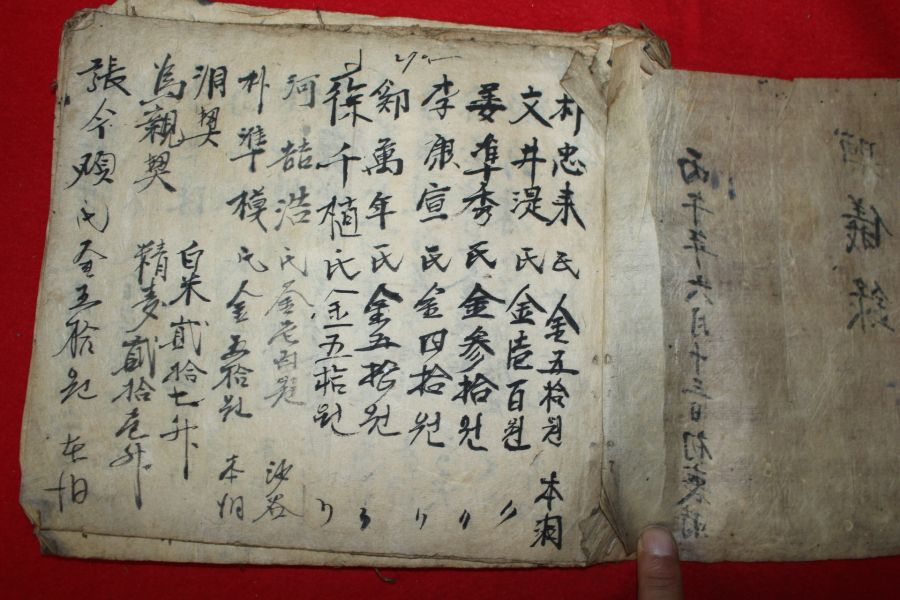 儀錄
丙午年六月十三日初喪
朴忠来氏 金五拾원 本洞
文井湜氏 金壱百원 〃
姜準秀氏 金參拾원 〃
李康宣氏 金四拾원 〃
鄭萬年氏 金五拾원 〃
徐千植氏 金五拾원 〃
河喆浩氏 金 沙谷
朴準模氏 金五拾원 本洞
洞契 白米貳拾七升
為親契 精麥貳拾壱升
張今順氏 金五拾원 本洞